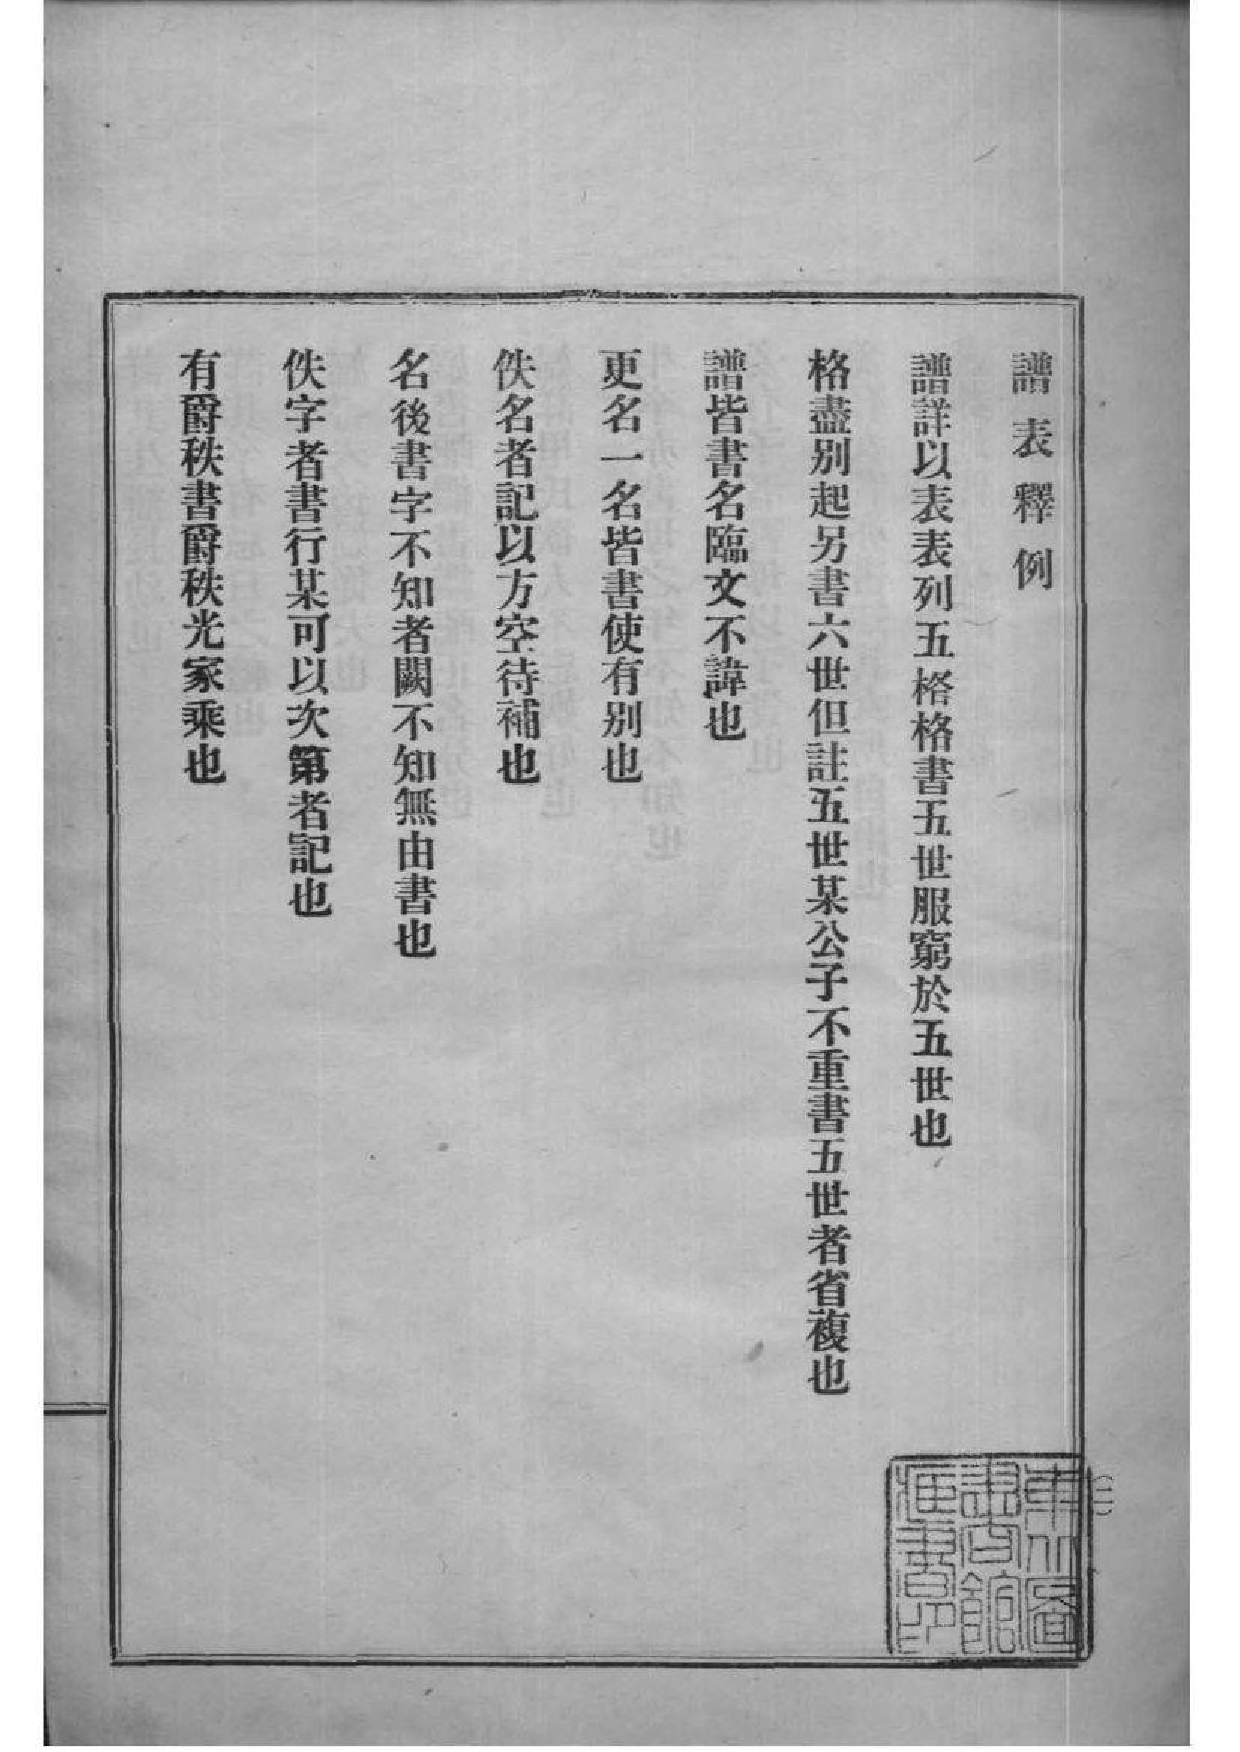 譜表釋例
譜詳以表表列五格格書五世服窮於五世也
格盡别起另書六世但註五世某公子不重書五世者省複也
譜皆書名臨文不諱也
更名一名皆書使有别也
佚名者記以方空待補也
名後書字不知者闕不知無由書也
佚字者書行某可以次第者記也
有爵秩書爵秩光家乘也
東北圖
書館
藏書印